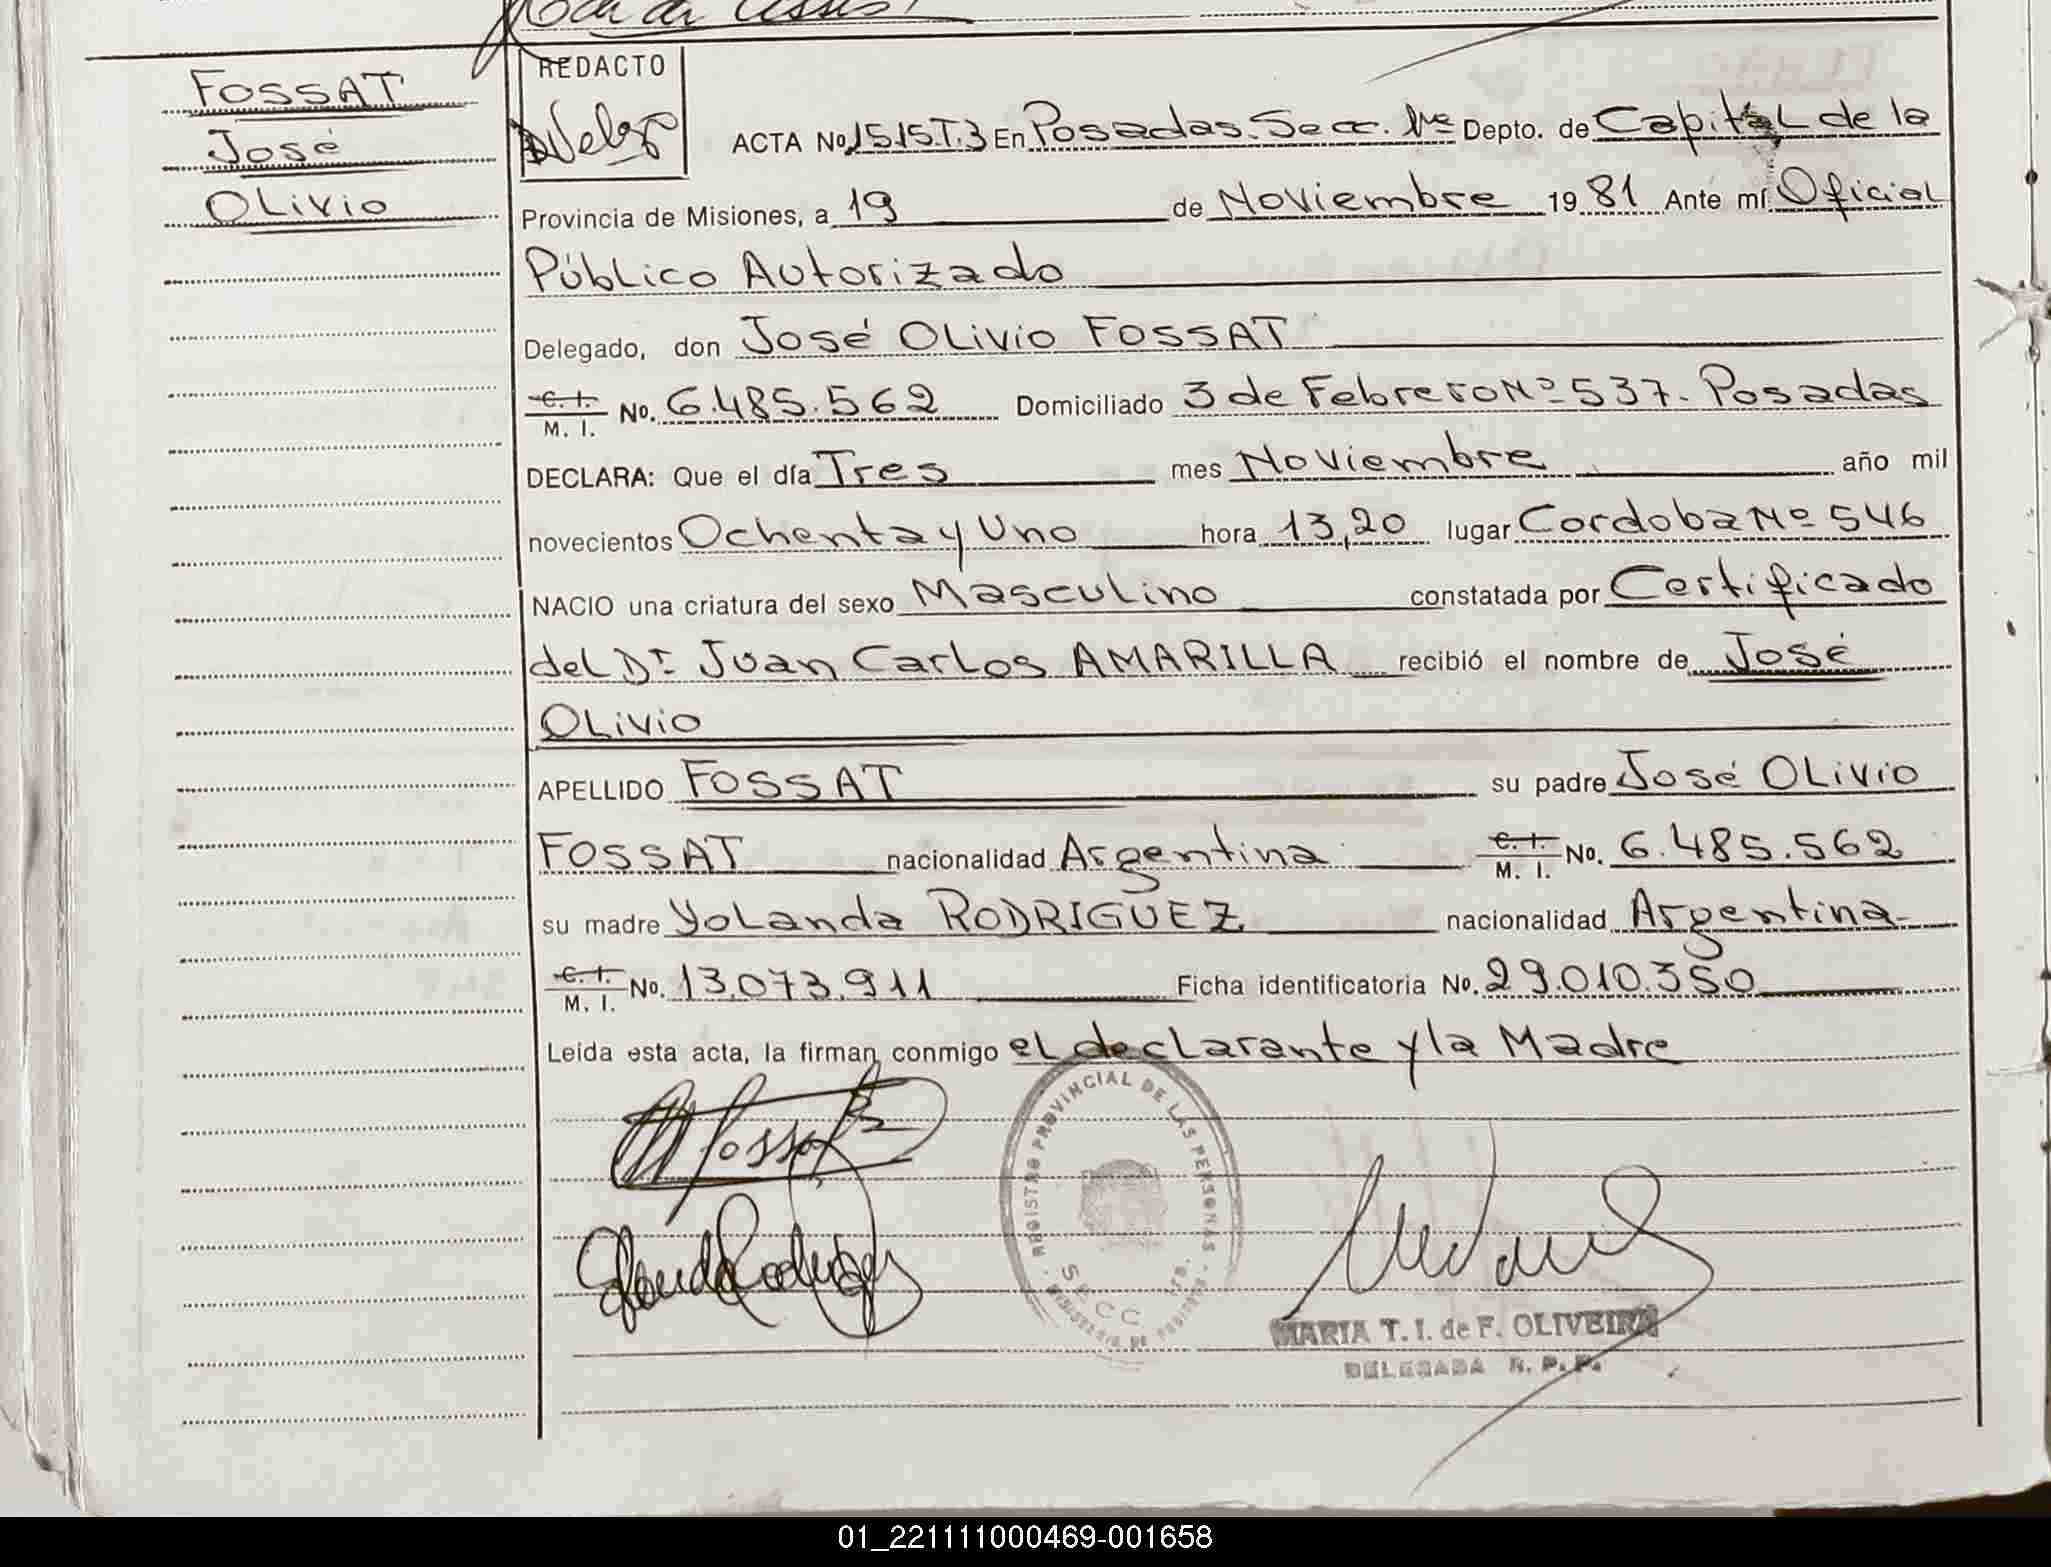 FOSSAT
José
OLivio
REDACTO
ACTA No. 1515 T.3 En Posadas. Secc. 1ra Depto. de CapitaL de la
Provincia de Misiones, a 19 de Noviembre 1981 Ante mí Oficial
Público Autorizado
Delegado, don José OLivio FOSSAT
C. I. M. I. No. 6.485.562 Domiciliado 3 de Febrero Nº 537. Posadas
DECLARA: Que el día Tres mes Noviembre año mil
novecientos Ochenta y Uno hora 13,20 lugar Cordoba Nº 546
NACIO una criatura del sexo Masculino constatada por Certificado
deL Dr Juan CarLos AMARILLA recibió el nombre de José
OLivio
APELLIDO FOSSAT su padre José OLivio
FOSSAT nacionalidad Argentina C. I. M. I. No. 6.485.562
su madre YoLanda RODRIGUEZ nacionalidad Argentina
C. I. M. I. No. 13.073.911 Ficha identificatoria No. 29.010.350
Leída esta acta, la firman conmigo eL decLarante y la Madre
Fossat
REGISTRO PROVINCIAL DE LAS PERSONAS
SECC
MARIA T. I. de F. OLIVEIRA
DELEGADA R. P. P.
01_221111000469-001658